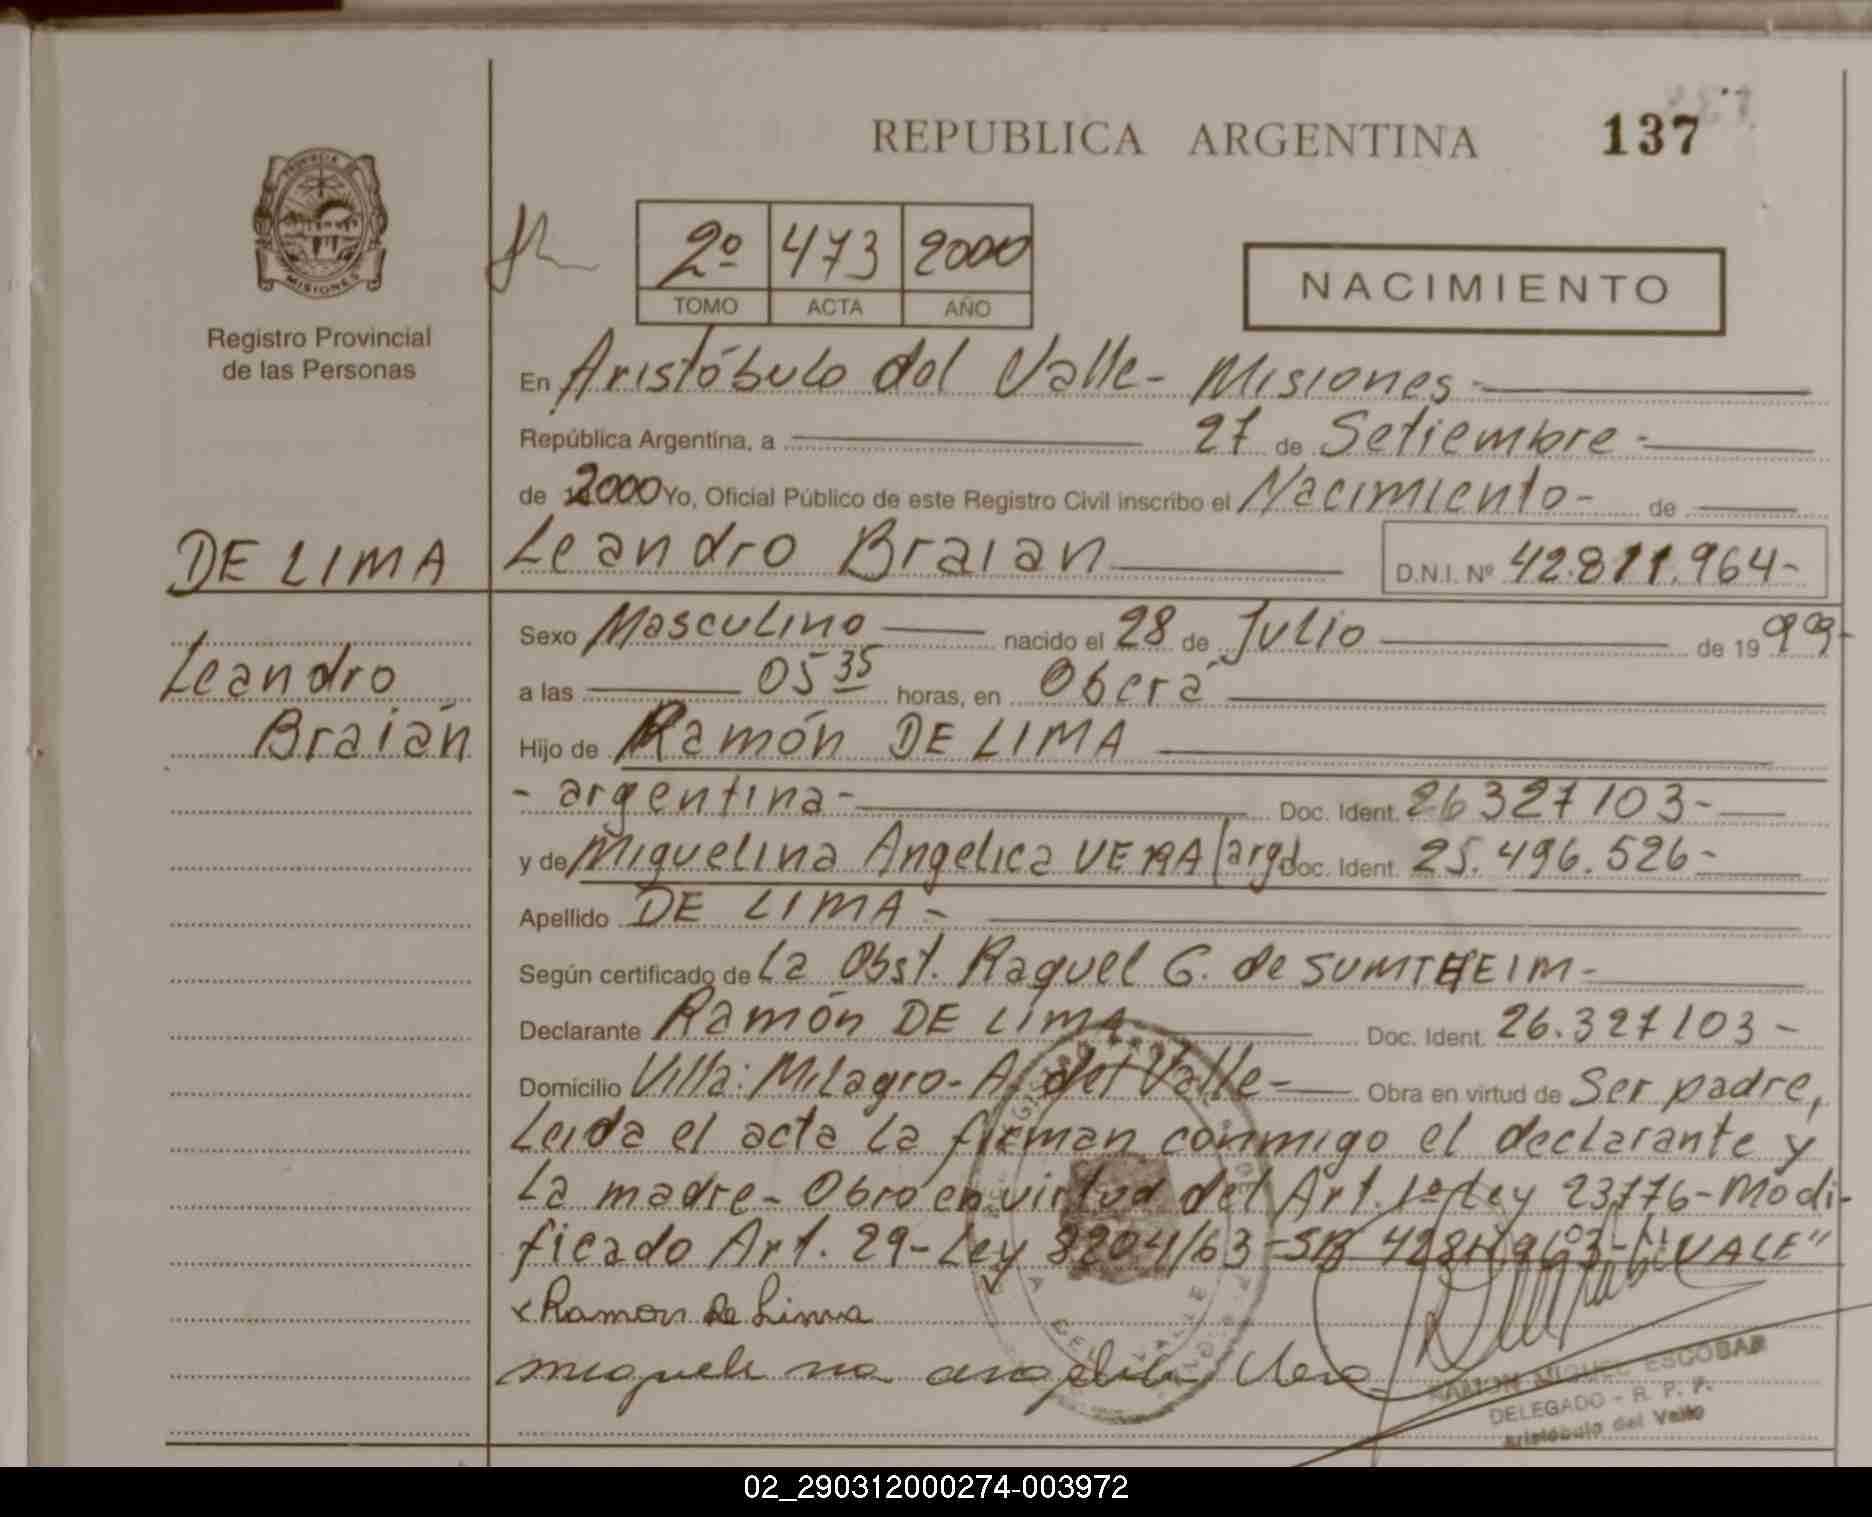 REPUBLICA ARGENTINA 137
PROVINCIA MISIONES
Registro Provincial
de las Personas
2º 473 2000
TOMO ACTA AÑO
NACIMIENTO
En Aristóbulo del Valle- Misiones-
República Argentina, a 27 de Setiembre-
de 2000 Yo, Oficial Público de este Registro Civil inscribo el Nacimiento- de
DE LIMA
Leandro Braian D.N.I. Nº 42.811.964-
Leandro
Braián
Sexo Masculino nacido el 28 de Julio de 1999-
a las 05 35 horas, en Oberá
Hijo de Ramón DE LIMA
- argentina- Doc. Ident. 26327103-
y de Miguelina Angelica VERA (arg) Doc. Ident. 25.496.526-
Apellido DE LIMA-
Según certificado de La Obst. Raquel G. de SUMTHEIM-
Declarante Ramón DE LIMA Doc. Ident. 26.327103-
Domicilio Villa: Milagro- A. del Valle- Obra en virtud de Ser padre,
Leida el acta La firman conmigo el declarante y
La madre- Obro en virtud del Art. 1º Ley 23776- Modi-
ficado Art. 29- Ley 8204/63- "VALE"
x Ramon De Lima
miguelina angelica Vera
RAMON MIGUEL ESCOBAR
DELEGADO - R. P. P.
Aristóbulo del Valle
02_290312000274-003972